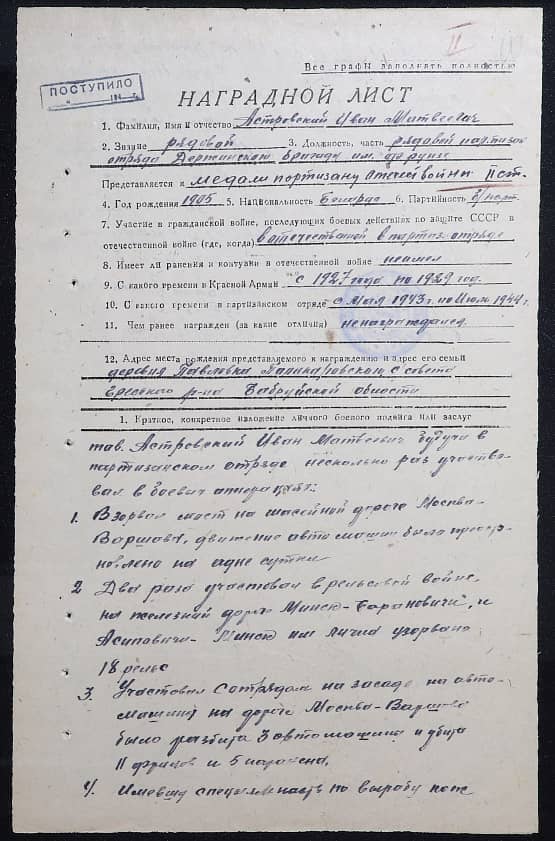 II
Все графы заполнять полностью
ПОСТУПИЛО
НАГРАДНОЙ ЛИСТ
1. Фамилия, имя и отчество Астровский Иван Матвеевич
2. Звание рядовой 3. Должность, часть рядовой партизан
отряда Бригады им. Фрунзе
Представляется к медали партизану Отечевойны II ст.
4. Год рождения 1905 5. Национальность Белорус 6. Партийность б/парт.
7. Участие в гражданской войне, последующих боевых действиях по защите СССР в
отечественной войне (где, когда) в отечественой в партиз. отряде
8. Имеет ли ранения и контузии в отечественной войне неимел
9. С какого времени в Красной Армии с 1927 года по 1929 год.
10. С какого времени в партизанском отряде с Мая 1943 г. по Июль 1944 г.
11. Чем ранее награжден (за какие отличия) ненаграждался.
12. Адрес места рождения представляемого к награждению и адрес его семьи
деревня Павловка с совета
р-на Бабруйской области
1. Краткое, конкретное изложение личного боевого подвига или заслуг
тов. Астровский Иван Матвеевич будучи в
партизанском отряде несколько раз участво-
вал в боевых
1. Взорвал мост на шассейной дороге Москва-
Варшава, движение автомашин было приоста-
новлено на адне сутки
2 Два раза участвовал в рельсовой войне,
на железной дороге Минск-Барановичи, и
Асиповичи-Минск им лично узорвано
18 рельс
3. Участвовал с отрядам на засаде на авто-
машины на дороге Москва-Варшава
было разбита 3 автомашины и убита
11 фрицов и 5 наранена.
4. Имевши специальность по